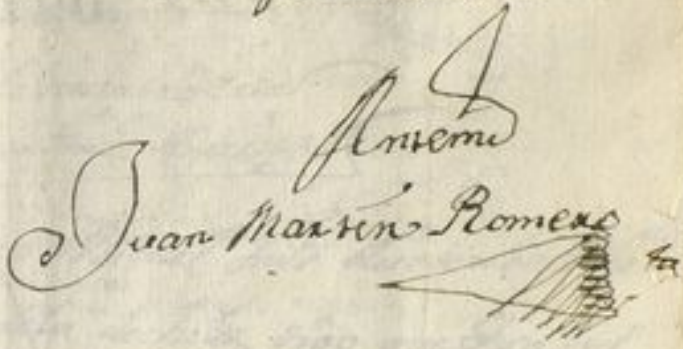 Antemi
Juan Martín Romero